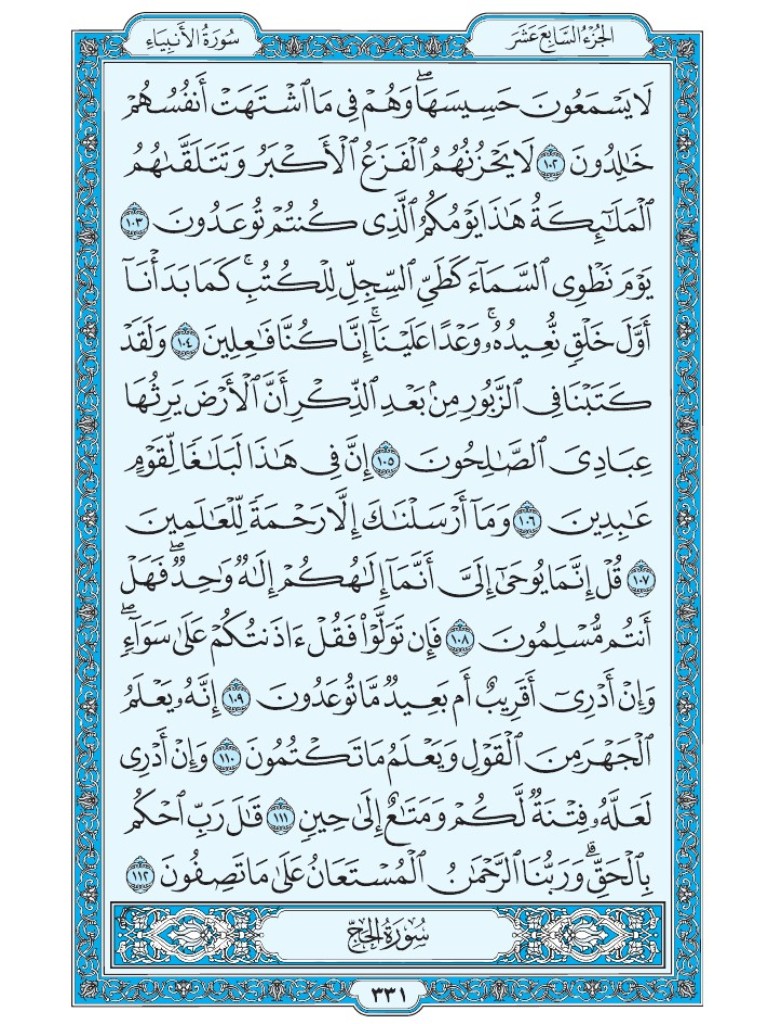 الجُزءُ السَّابِعَ عَشَرَ
سُورَةُ الأَنبِيَاءِ
لَا يَسْمَعُونَ حَسِيسَهَاۖ وَهُمْ فِي مَا ٱشْتَهَتْ أَنفُسُهُمْ
خَٰلِدُونَ ١٠٢ لَا يَحْزُنُهُمُ ٱلْفَزَعُ ٱلْأَكْبَرُ وَتَتَلَقَّىٰهُمُ
ٱلْمَلَٰٓئِكَةُ هَٰذَا يَوْمُكُمُ ٱلَّذِى كُنتُمْ تُوعَدُونَ ١٠٣
يَوْمَ نَطْوِى ٱلسَّمَآءَ كَطَىِّ ٱلسِّجِلِّ لِلْكُتُبِۚ كَمَا بَدَأْنَآ
أَوَّلَ خَلْقٍ نُّعِيدُهُۥۚ وَعْدًا عَلَيْنَآۚ إِنَّا كُنَّا فَٰعِلِينَ ١٠٤ وَلَقَدْ
كَتَبْنَا فِى ٱلزَّبُورِ مِنۢ بَعْدِ ٱلذِّكْرِ أَنَّ ٱلْأَرْضَ يَرِثُهَا
عِبَادِىَ ٱلصَّٰلِحُونَ ١٠٥ إِنَّ فِى هَٰذَا لَبَلَٰغًا لِّقَوْمٍ
عَٰبِدِينَ ١٠٦ وَمَآ أَرْسَلْنَٰكَ إِلَّا رَحْمَةً لِّلْعَٰلَمِينَ
١٠٧ قُلْ إِنَّمَا يُوحَىٰٓ إِلَىَّ أَنَّمَآ إِلَٰهُكُمْ إِلَٰهٌ وَٰحِدٌۖ فَهَلْ
أَنتُم مُّسْلِمُونَ ١٠٨ فَإِن تَوَلَّوْا۟ فَقُلْ ءَاذَنتُكُمْ عَلَىٰ سَوَآءٍۖ
وَإِنْ أَدْرِىٓ أَقَرِيبٌ أَم بَعِيدٌ مَّا تُوعَدُونَ ١٠٩ إِنَّهُۥ يَعْلَمُ
ٱلْجَهْرَ مِنَ ٱلْقَوْلِ وَيَعْلَمُ مَا تَكْتُمُونَ ١١٠ وَإِنْ أَدْرِى
لَعَلَّهُۥ فِتْنَةٌ لَّكُمْ وَمَتَٰعٌ إِلَىٰ حِينٍ ١١١ قَٰلَ رَبِّ ٱحْكُم
بِٱلْحَقِّۗ وَرَبُّنَا ٱلرَّحْمَٰنُ ٱلْمُسْتَعَانُ عَلَىٰ مَا تَصِفُونَ ١١٢
سُورَةُ الحَجّ
٣٣١